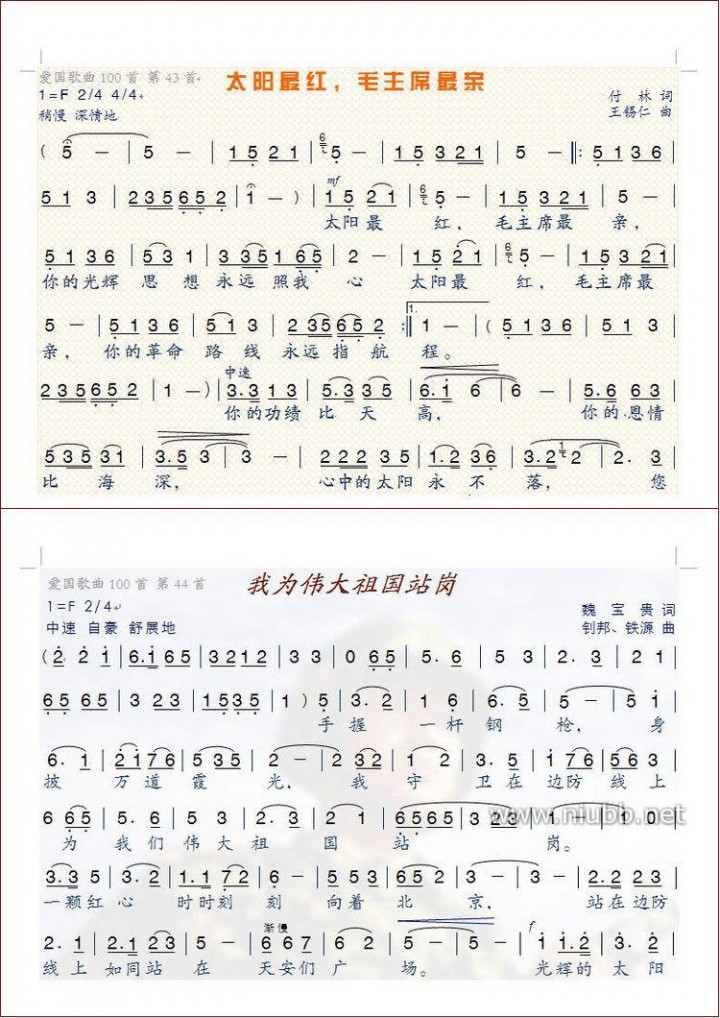 爱国歌曲100首 第43首
太阳最红，毛主席最亲
1=F 2/4 4/4
付 林 词
稍慢 深情地
王锡仁 曲
( 5 — | 5 — | 1 5 2 1 | 6 5 — | 1 5 3 2 1 | 5 — ‖: 5 1 3 6 |
5 1 3 | 2 3 5 6 5 2 | 1 — ) | mf 1 5 2 1 | 6 5 — | 1 5 3 2 1 | 5 — |
太阳最 红， 毛主席最 亲，
5 1 3 6 | 5 3 1 | 3 3 5 1 6 5 | 2 — | 1 5 2 1 | 6 5 — | 1 5 3 2 1 |
你的光辉 思 想 永远 照我 心 太阳最 红， 毛主席最
5 — | 5 1 3 6 | 5 1 3 | 2 3 5 6 5 2 :‖ 1. 1 — | ( 5 1 3 6 | 5 1 3 |
亲， 你的革命 路 线 永远 指航 程。
中速
2 3 5 6 5 2 | 1 — ) | 3. 3 1 3 | 5. 3 3 5 | 6. 1 6 | 6 — | 5. 6 6 3 |
你的功绩 比 天 高， 你的恩情
5 3 5 3 1 | 3. 5 3 | 3 — | 2 2 2 3 5 | 1. 2 3 6 | 5. 6 1 | 3. 2 1 2 | 2. 3 |
比 海 深， 心中的太阳 永 不 落， 您
爱国歌曲100首 第44首
我为伟大祖国站岗
1=F 2/4
魏 宝 贵 词
中速 自豪 舒展地
钊邦、铁源 曲
( 2. 2 1 | 6. 1 6 5 | 3 2 1 2 | 3 3 | 0 6 5 | 5. 6 | 5 3 | 2. 3 | 2 1 |
6 5 6 5 | 3 2 3 | 1 5 3 5 | 1 ) 5 | 3. 2 | 1 6 | 6. 5 | 5 — | 5 1 |
手 握 一杆 钢 枪， 身
6. 1 | 2 1 7 6 | 5 3 5 | 2 — | 2 3 2 | 1 2 | 3. 5 | 1 7 6 | 5 6 5 3 |
披 万道 霞 光， 我 守 卫在 边防 线上
www.niubb.net
6 6 5 | 3. 5 | 5 3 | 2. 3 | 2 1 | 6 5 6 5 | 3 2 3 | 1 — | 1 0 |
为 我 们 伟 大 祖 国 站 岗。
3. 3 5 | 3. 2 | 1. 1 7 2 | 6 — | 5 5 3 | 6. 6 5 | 3 — | 3 — | 2. 2 2 3 |
一颗红 心 时时刻 刻 向着 北 京， 站在边防
渐慢
2. 1 | 2. 1 2 3 | 5 — | 6 6 7 | 5. 5 | 5 — | 5 — | f 1 1. 2 | 1 2 |
线上 如同站 在 天安们 广 场。 光辉的 太阳